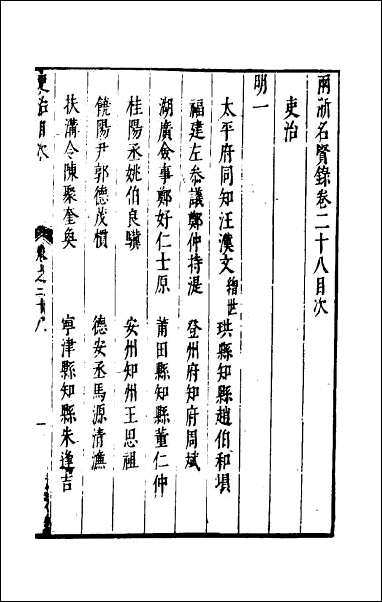 兩浙名賢錄卷二十八目次
吏治
明一
太平府同知汪漢文稽世　珙縣知縣趙伯和塤
福建左叅議鄭仲持湜　登州府知府周斌
湖廣僉事鄭好仁士原　莆田縣知縣董仁仲
桂陽丞姚伯良驥　安州知州王思祖
饒陽尹郭德茂慣　德安丞馬源清濂
扶溝令陳聚奎奐　寧津縣知縣朱逢吉
吏治目次
卷之二十八
一